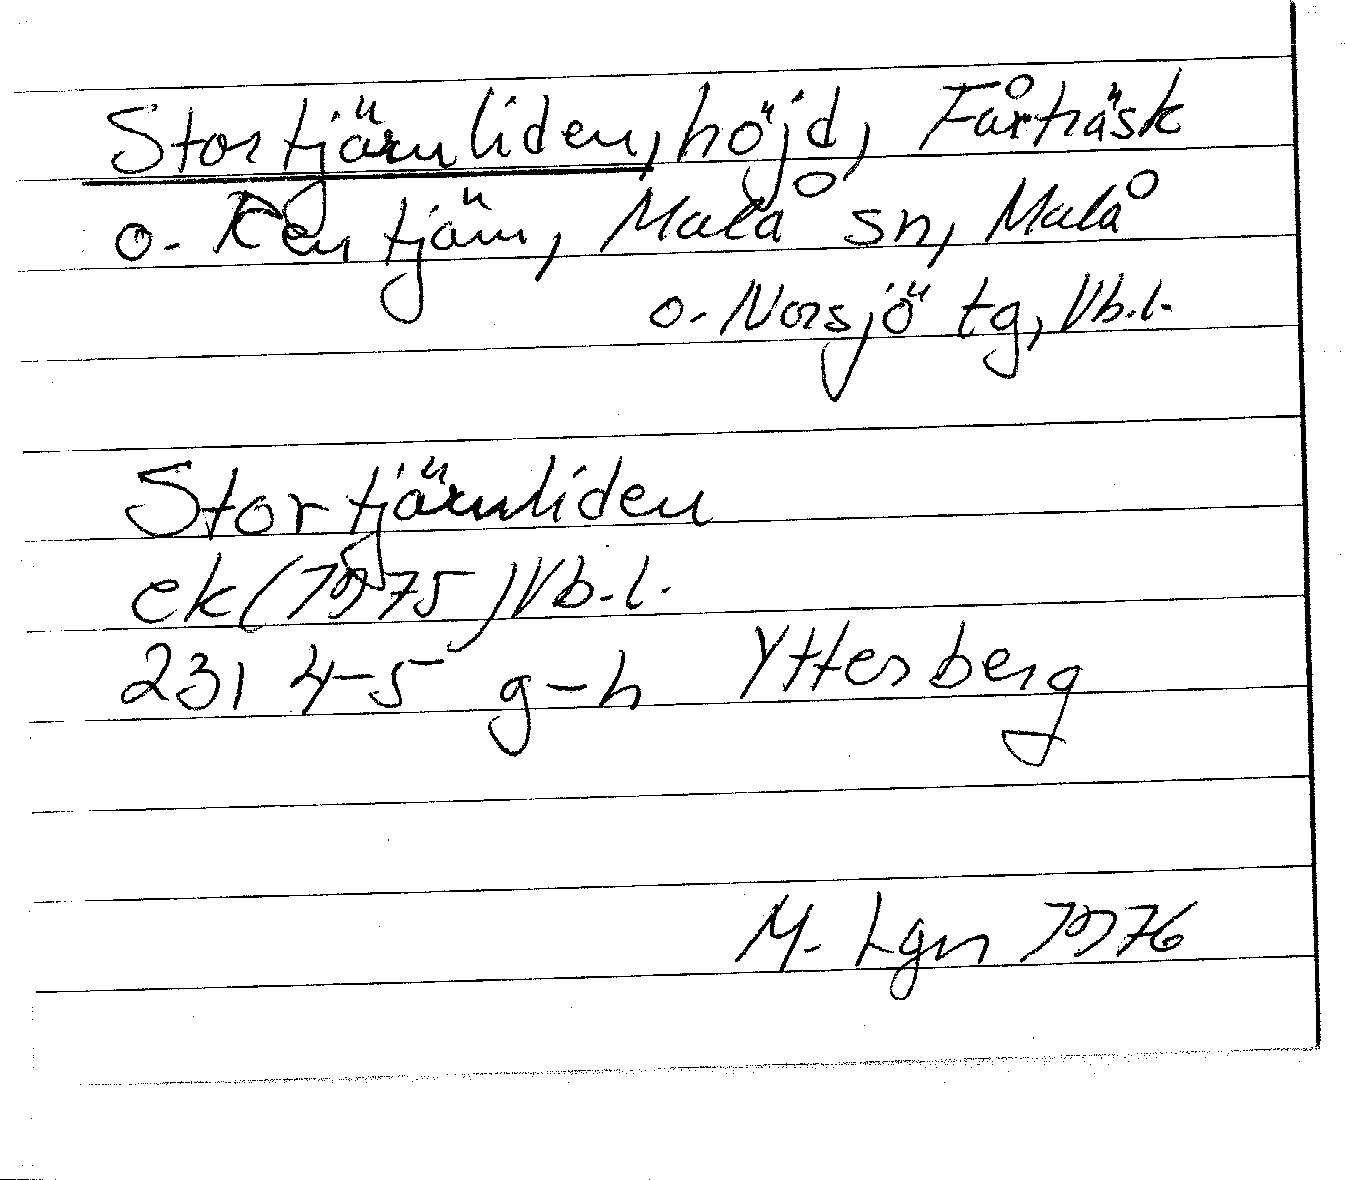 Stortjärnliden, höjd, Fårträsk
o. Rentjärn, Malå sn, Malå
o. Norsjö tg, Vb.l.
Stortjärnliden
ek (1975) Vb.l.
231 4-5 g-h Ytterberg
M. Lgn 1976